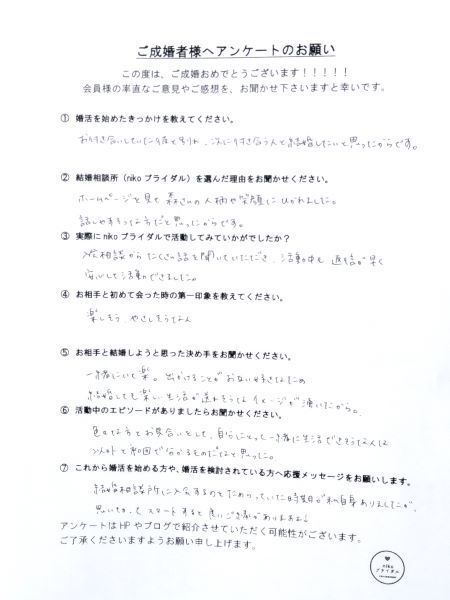 ご成婚者様へアンケートのお願い
この度は、ご成婚おめでとうございます！！！！！
会員様の率直なご意見やご感想を、お聞かせ下さいますと幸いです。
① 婚活を始めたきっかけを教えてください。
お付き合いしていた彼と別れ、次に付き合う人と結婚したいと思ったからです。
② 結婚相談所（nikoブライダル）を選んだ理由をお聞かせください。
ホームページを見て森さんの人柄や笑顔にひかれました。
話しやすそうな方だと思ったからです。
③ 実際にnikoブライダルで活動してみていかがでしたか？
入会相談からたくさん話を聞いていただき、活動中も返信が早く
安心して活動できました。
④ お相手と初めて会った時の第一印象を教えてください。
楽しそう、やさしそうな人
⑤ お相手と結婚しようと思った決め手をお聞かせください。
一緒にいて楽。出かけることがお互い好きなため
結婚しても楽しい生活が送れそうなイメージが湧いたから。
⑥ 活動中のエピソードがありましたらお聞かせください。
色々な方とお見合いをして、自分にとって一緒に生活できそうな人は
以外と初回で分かるものだなと思った。
⑦ これから婚活を始める方や、婚活を検討されている方へ応援メッセージをお願いします。
結婚相談所に入会するのをためらっていた時期が私自身ありましたが、
思い切ってスタートすると良いご縁がありますよ！
アンケートはHPやブログで紹介させていただく可能性がございます。
ご了承くださいますようお願い申し上げます。
niko
ブライダル